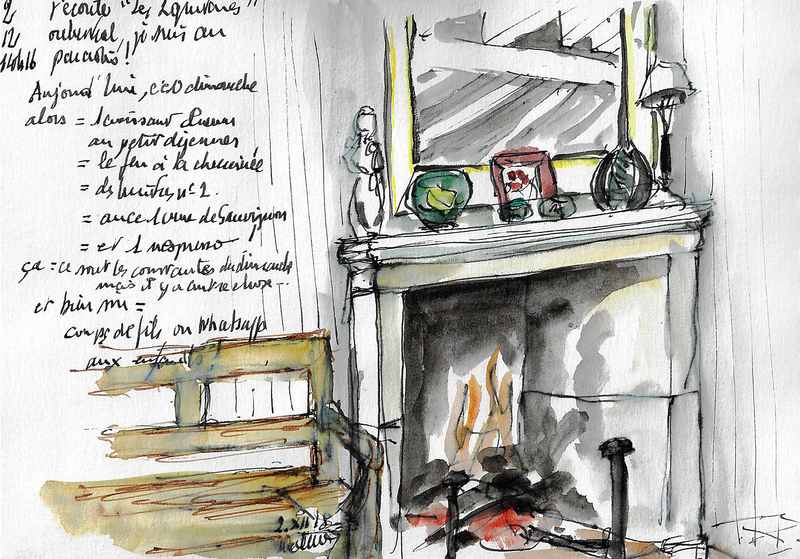 2 j'écoute "Les
12 je suis au
14h16 paradis!
Aujourd'hui, c'est dimanche
alors = 1 croissant
au petit déjeuner
= le feu à la cheminée
= n° 2.
= avec 1 verre de Sauvignon
= et 1 nespresso
ça = ce sont les constantes du dimanche
mais il y a autre chose...
et bien sûr =
coups de fils ou WhatsApp
aux enfants
2.XII.18